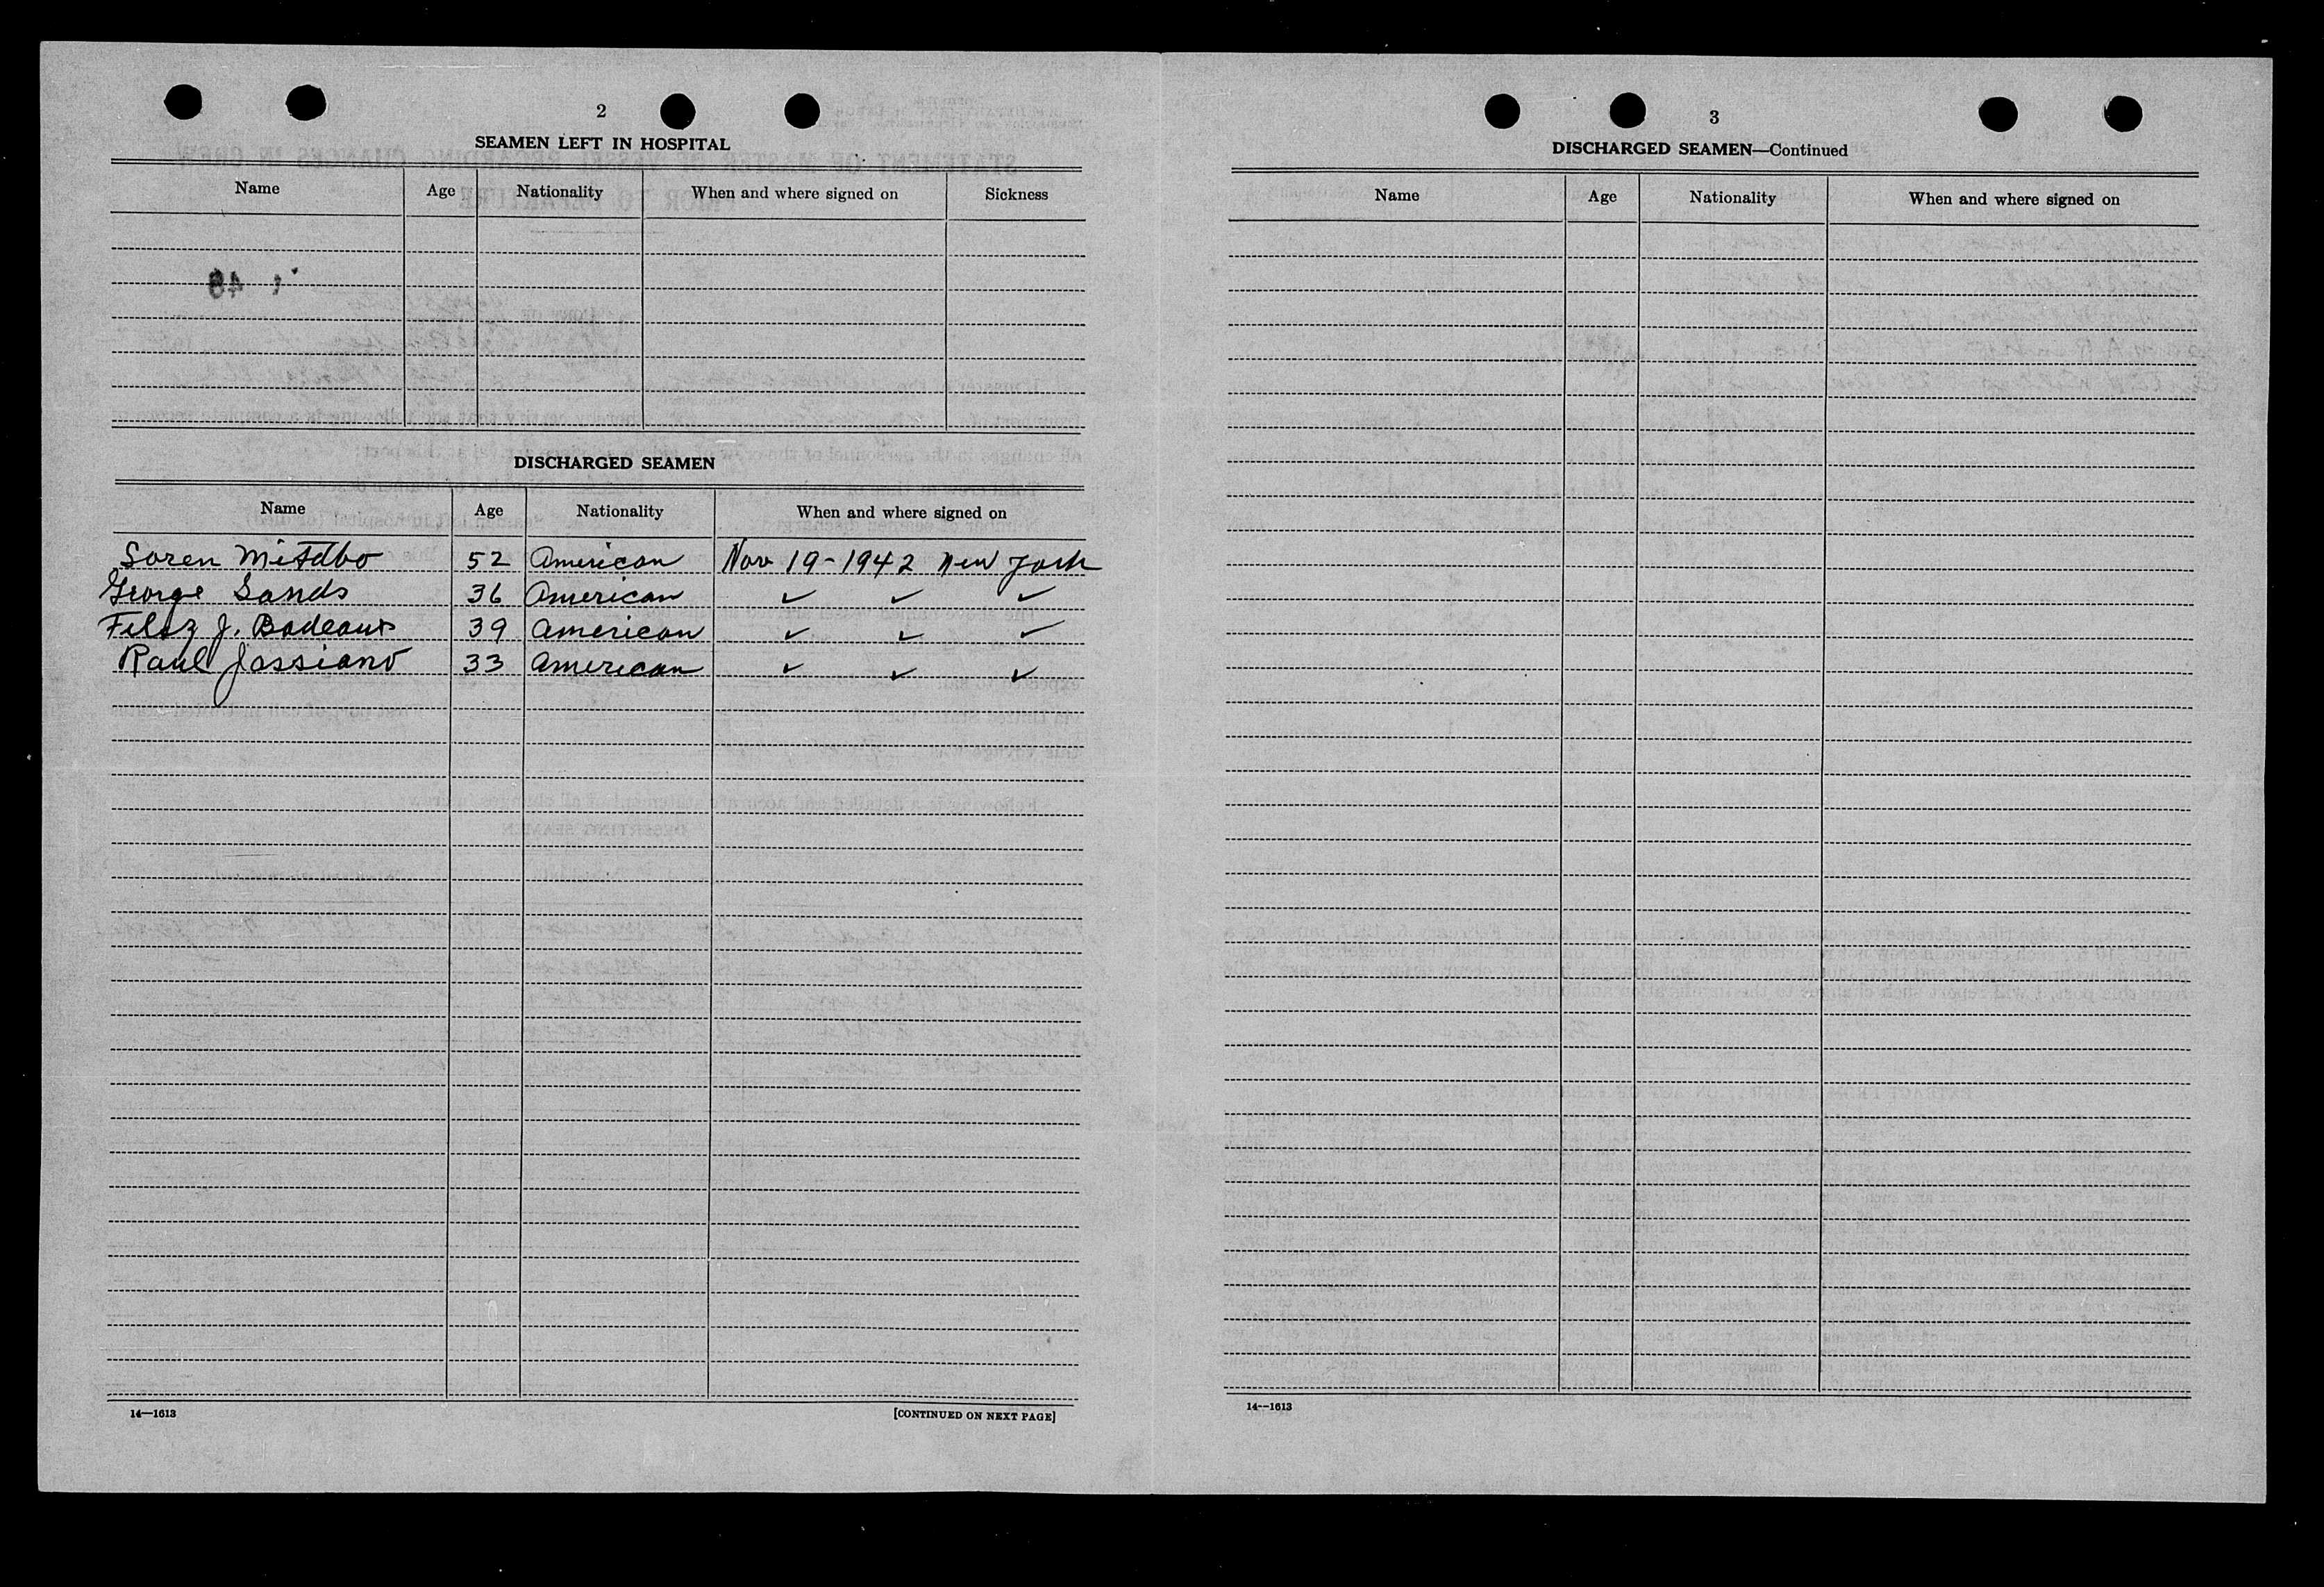 2
SEAMEN LEFT IN HOSPITAL
Name Age Nationality When and where signed on Sickness
DISCHARGED SEAMEN
Name Age Nationality When and where signed on
Soren Mitdbo 52 American Nov 19-1942 New York
George Sands 36 American ✓ ✓ ✓
J. Badeaux 39 American ✓ ✓ ✓
Raul Jassiano 33 American ✓ ✓ ✓
14—1613 [CONTINUED ON NEXT PAGE]
3
DISCHARGED SEAMEN—Continued
Name Age Nationality When and where signed on
14—1613